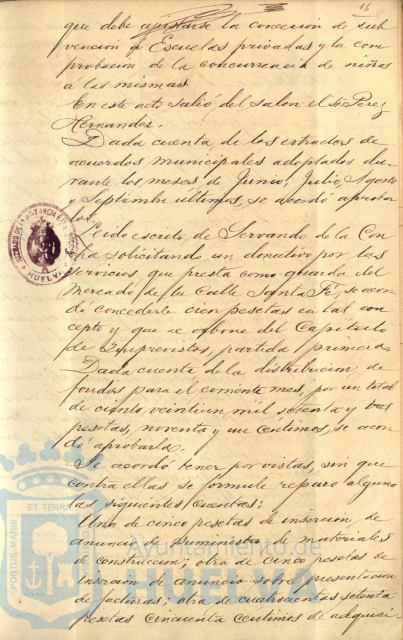 16
que debe ajustarse la concesion de sub
vencion a Escuelas privadas y la com
probacion de la concurrencia de niños
a las mismas
En este acto salió del salon el Sr. Perez
Hernandez.
Dada cuenta de los extractos de
acuerdos municipales adoptados du-
rante los meses de Junio, Julio, Agosto
y Septiembre ultimos, se acordó aprobar
los.
Leido escrito de Servando de la Con
solicitando un donativo por los
servicios que presta como guarda del
Mercado de la Calle Santa Fé, se acor
dó concederle cien pesetas en tal con
cepto y que se abone del Capitulo
de Imprevistos partida primera
Dada cuenta de la distribucion de
fondos para el corriente mes, por un total
de ciento veintiun mil setenta y tres
pesetas, noventa y un centimos, se acor
dó aprobarla.
Se acordó tener por vistas, sin que
contra ellas se formule reparo alguno
las siguientes cuentas:
Una de cinco pesetas de insercion de
anuncio de suministro de materiales
de construccion; otra de cinco pesetas de
insercion de anuncio sobre presentacion
de facturas; otra de cuatrocientas setenta
pesetas cincuenta centimos de adquisi-
HUELVA
ET TERRÆ
PORTUS MARIS
Ayuntamiento de
HUELVA